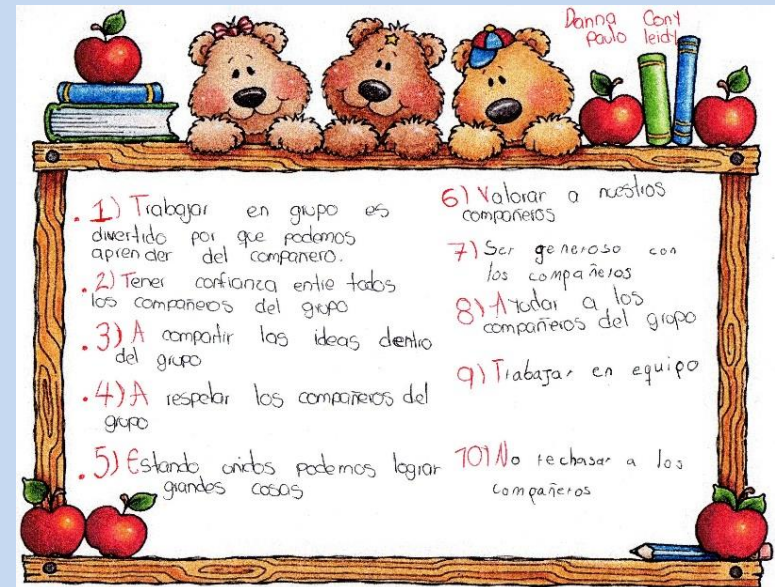 Danna Cony
paulo leidy
. 1) Trabajar en grupo es
divertido por que podemos
aprender del compañero.
. 2) Tener confianza entre todos
los compañeros del grupo
. 3) A compartir las ideas dentro
del grupo
. 4) A respetar los compañeros del
grupo
. 5) Estando unidos podemos lograr
grandes cosas
6) Valorar a nuestros
compañeros
7) Ser generoso con
los compañeros
8) Ayudar a los
compañeros del grupo
9) Trabajar en equipo
10) No rechasar a los
compañeros